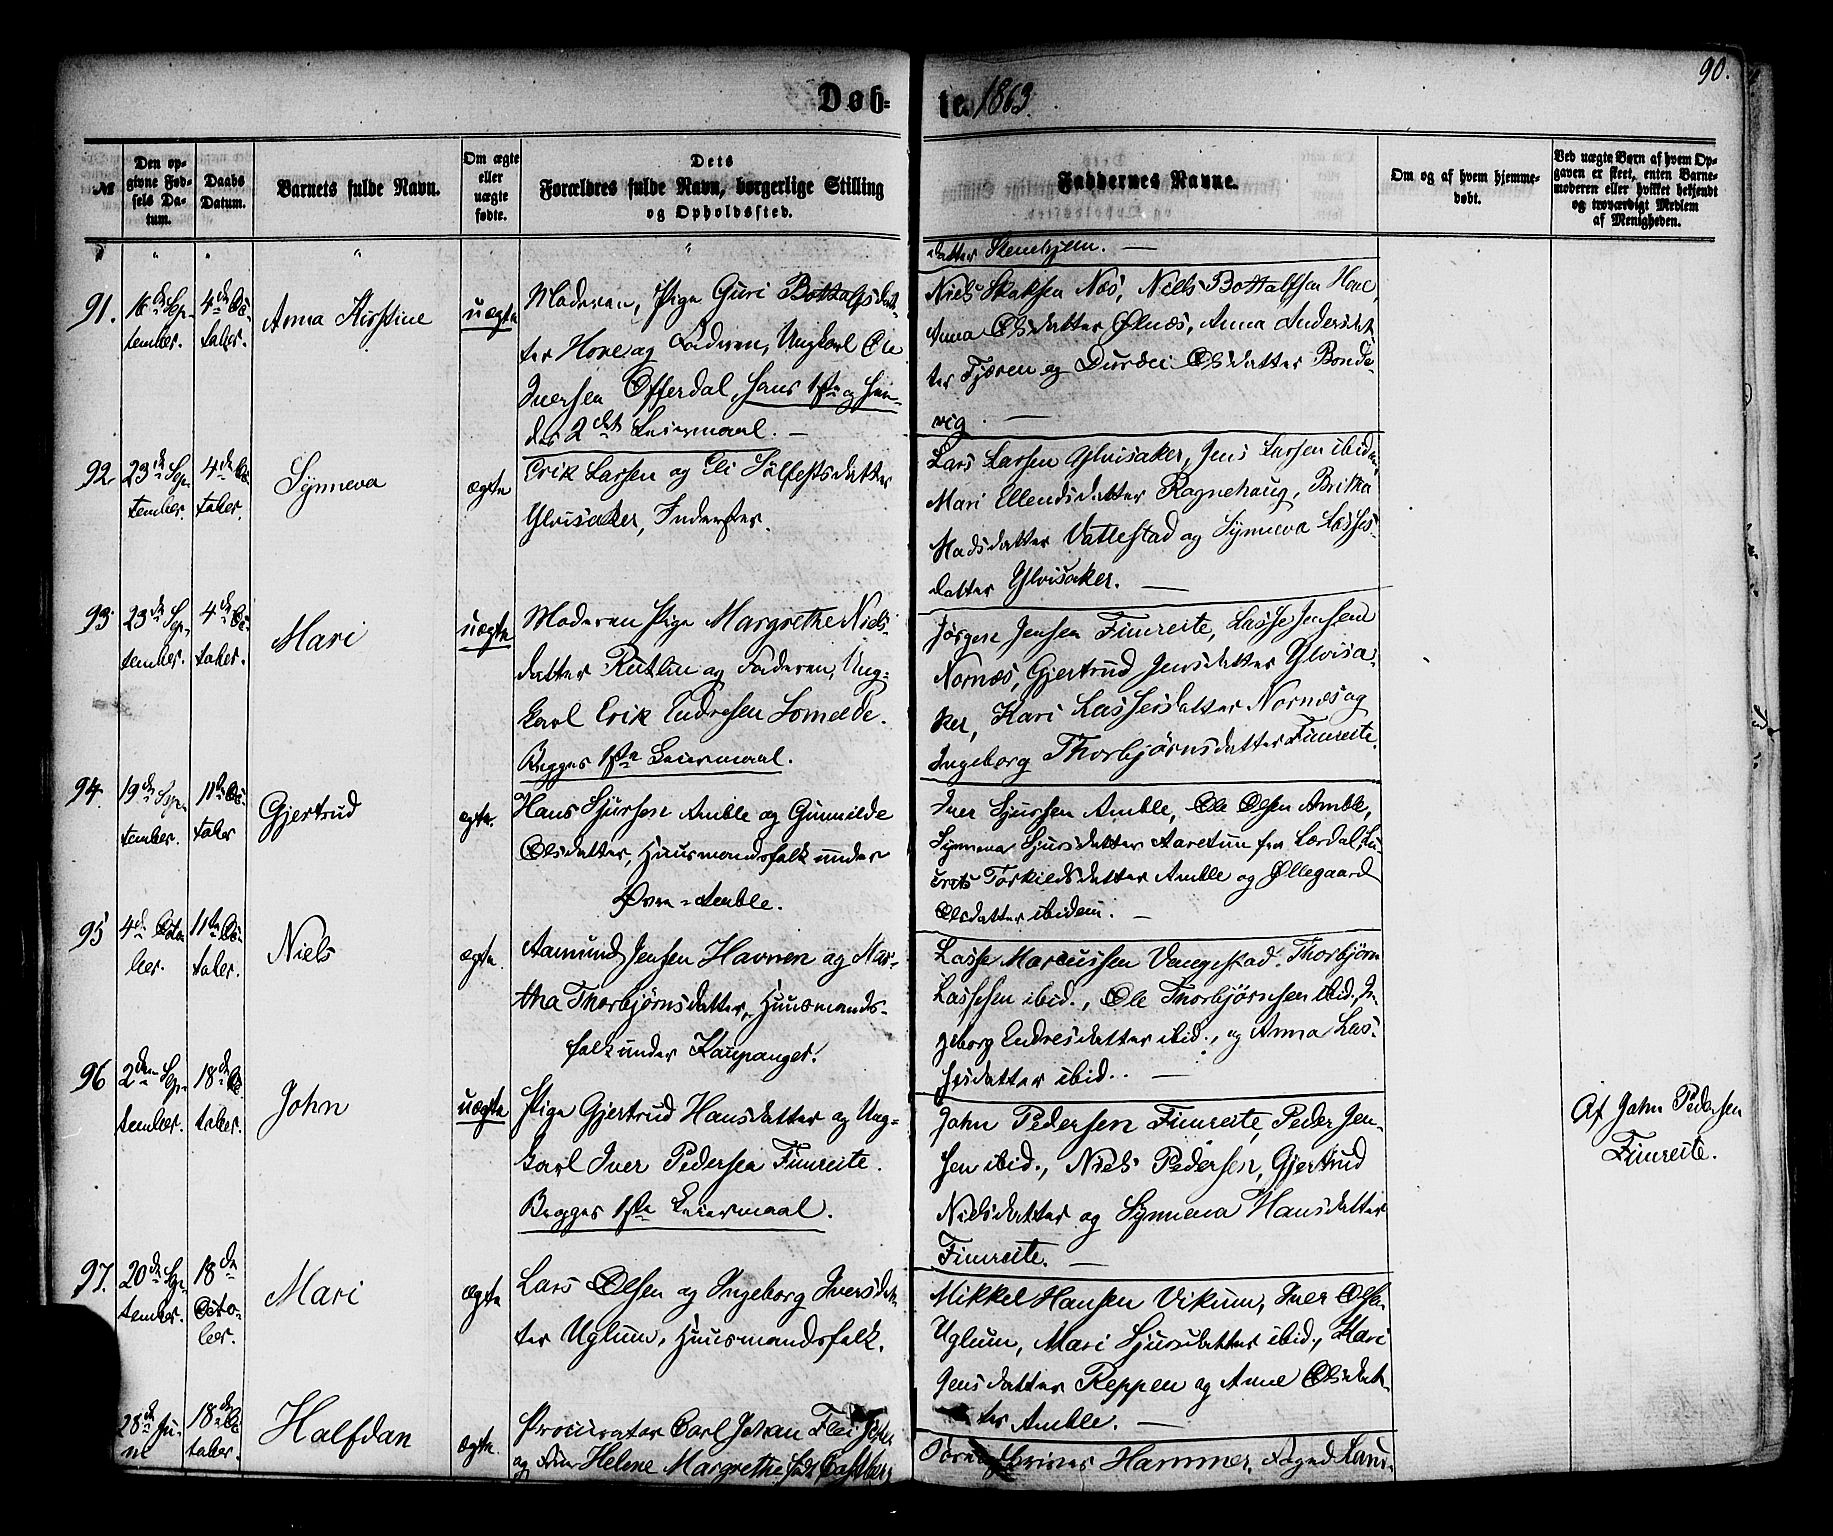 90.
Døb- te. 1863.
№
Den op-
givne Fød-
sels Da-
tum.
Daabs
Datum.
Barnets fulde Navn.
Om ægte
eller
uægte
fødte.
Dets
Forældres fulde Navn, borgerlige Stilling
og Opholdssted.
Faddernes Navne.
Om og af hvem hjemme-
døbt.
Ved uægte Børn af hvem Op-
gaven er skeet, enten Barne-
moderen eller hvilket bekjendt
og troværdigt Medlem
af Menigheden.
" " " "
datter Stenehjem. —
91.
16de Sep-
tember.
4de Oc-
tober.
Anna Kirstine
uægte
Moderen, Pige Guri Bottolfsdat-
ter Hove og Faderen, Ungkarl Ole
Iversen Offerdal, hans 1ste og hen-
des 2det Leiermaal. —
Niels Næs, Niels Bottolfsen Hove,
Anna Olsdatter Ølnæs, Anna Andersdat-
ter Fjæren og Durdei Olsdatter Bonde-
vig. —
92.
23de Sep-
tember.
4de Oc-
tober.
Synneva
ægte
Erik Larsen og Eli Sølfestsdatter
Ylvisaker, Inderster.
Lars Larsen Ylvisaker, Jens Larsen ibidem,
Mari Ellendsdatter Ragnehaug, Britha
Madsdatter Vattestad og Synneva Lasses-
datter Ylvisaker. —
93.
23de Sep-
tember.
4de Oc-
tober.
Mari
uægte
Moderen Pige Margrethe Niels-
datter Rutlin og Faderen, Ung-
karl Erik Endresen Lomelde.
Begges 1ste Leiermaal.
Jørgen Jensen Fimreite, Lasse Jensen
Nornæs, Gjertrud Jensdatter Ylvisa-
ker, Kari Lassesdatter Nornæs og
Ingeborg Thorbjørnsdatter Fimreite.
94.
19de Sep-
tember.
11te Oc-
tober
Gjertrud
ægte.
Hans Sjursen Amble og Gunnilde
Olsdatter, Huusmandsfolk under
Øvre-Amble.
Iver Sjursen Amble, Ole Olsen Amble,
Synneva Sjursdatter Aaretun fra Lærdal,
Torkildsdatter Amble og Øllegaard
Olsdatter ibidem. —
95
4de Octo-
ber.
11te Oc-
tober.
Niels
ægte.
Aamund Jensen Havnen og Mar-
tha Thorbjørnsdatter, Huusmands-
folk under Kaupanger.
Lasse Marcussen Vangestad. Thorbjørn
Lassesen ibid., Ole Thorbjørnsen ibid, In-
geborg Endresdatter ibid., og Anna Las-
sesdatter ibid. —
96
2den Sep-
tember.
18de Oc-
tober.
John
uægte
Pige Gjertrud Hansdatter og Ung-
karl Iver Pedersen Fimreite.
Begges 1ste Leiermaal.
John Pedersen Fimreite, Peder Jen-
sen ibid., Niels Pedersen, Gjertrud
Nielsdatter og Synneva Hansdatter
Fimreite. —
Af John Pedersen
Fimreite.
97.
20de Sep-
tember.
18de
Octo-
ber.
Mari
ægte
Lars Olsen og Ingeborg Iversdat-
ter Uglum, Huusmandsfolk.
Mikkel Hansen Vikum, Iver Olsen
Uglum, Mari Sjursdatter ibid., Kari
Jensdatter Reppen og Anne Olsdat-
ter Amble. —
28de Ju-
ni
18de Oc-
tober.
Halfdan
ægte.
Procurator Carl Johan
og Frue Helene Margrethe født Castberg
Hammer,